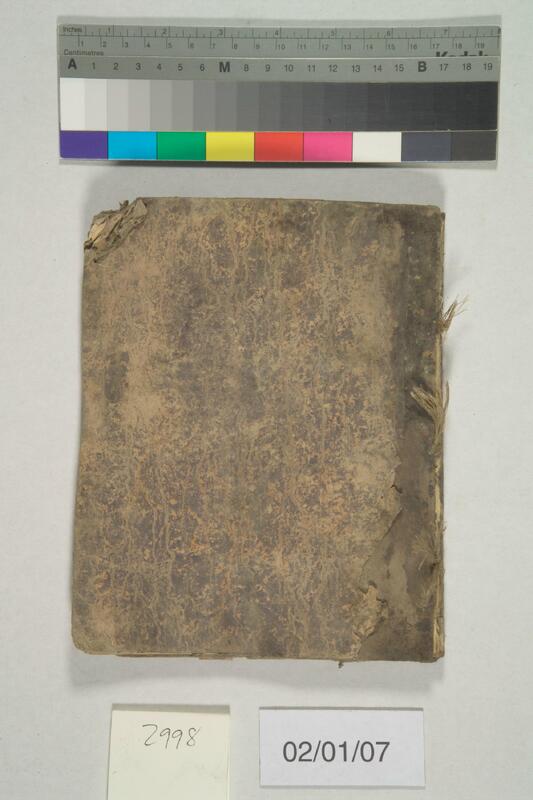 Inches 1 2 3 4 5 6 7 8
Centimetres 1 2 3 4 5 6 7 8 9 10 11 12 13 14 15 16 17 18 19
Kodak
A 1 2 3 4 5 6 M 8 9 10 11 12 13 14 15 B 17 18 19
2998
02/01/07